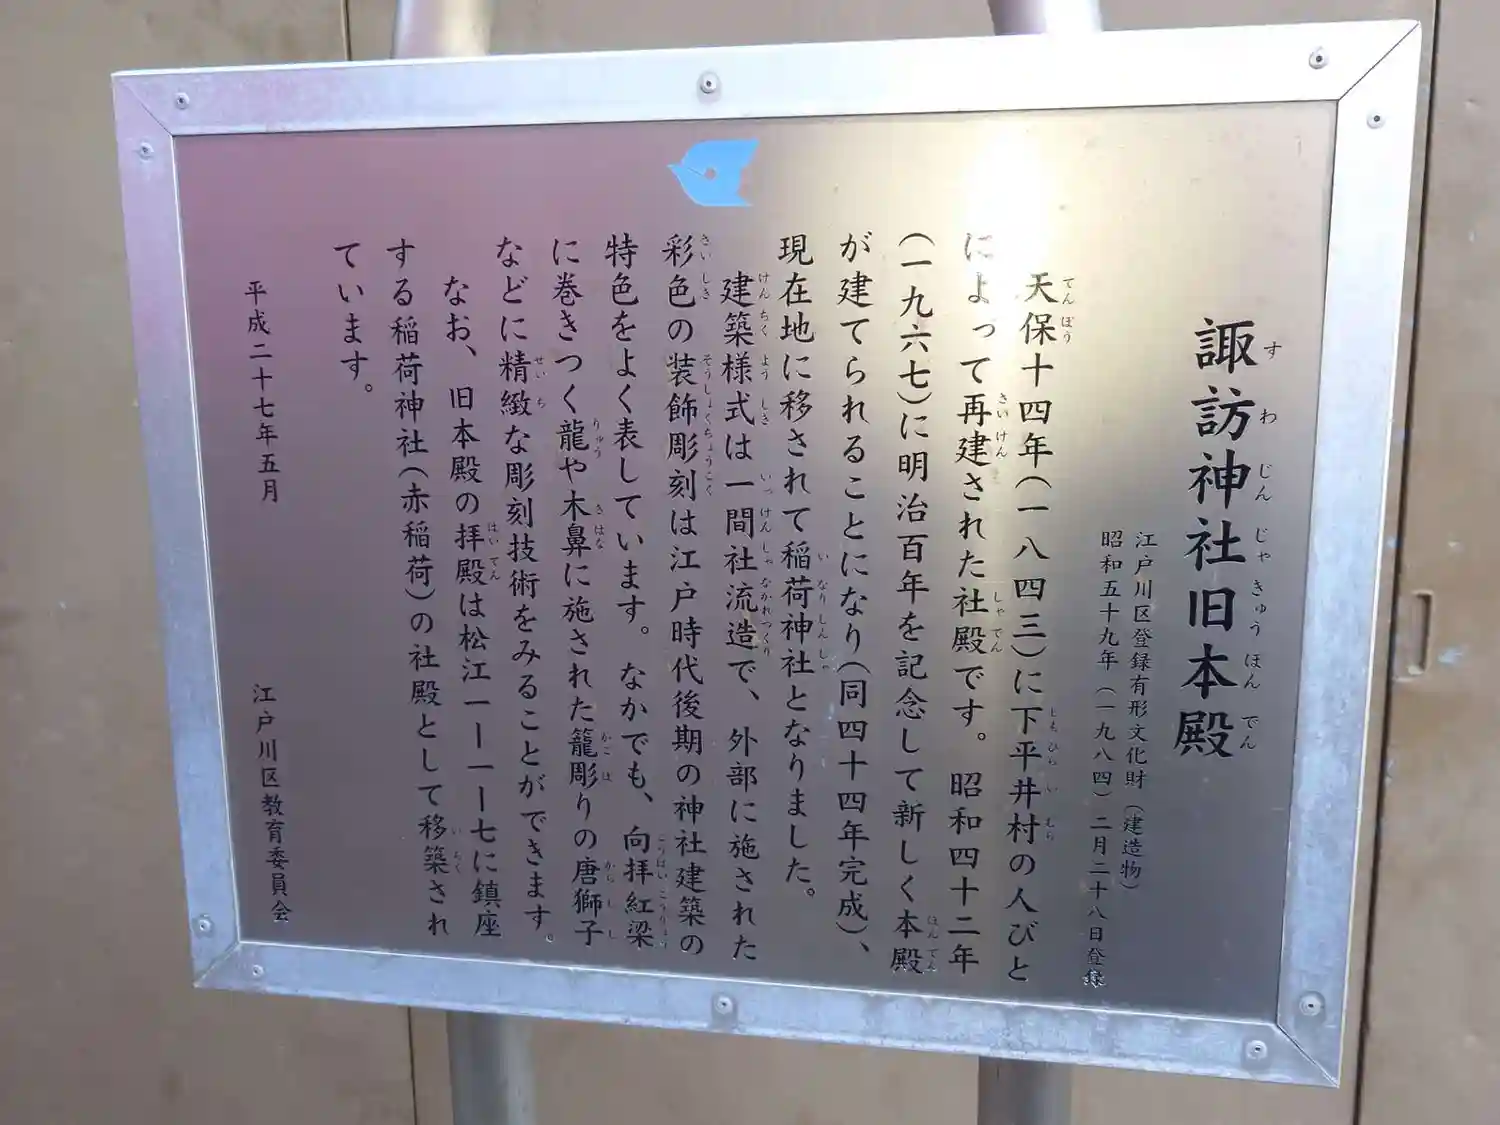 諏訪神社旧本殿
江戸川区登録有形文化財（建造物）
昭和五十九年（一九八四）二月二十八日登録
天保十四年（一八四三）に下平井村の人びと
によって再建された社殿です。昭和四十二年
（一九六七）に明治百年を記念して新しく本殿
が建てられることになり（同四十四年完成）、
現在地に移されて稲荷神社となりました。
建築様式は一間社流造で、外部に施された
彩色の装飾彫刻は江戸時代後期の神社建築の
特色をよく表しています。なかでも、向拝紅梁
に巻きつく龍や木鼻に施された籠彫りの唐獅子
などに精緻な彫刻技術をみることができます。
なお、旧本殿の拝殿は松江一ー一ー七に鎮座
する稲荷神社（赤稲荷）の社殿として移築され
ています。
平成二十七年五月
江戸川区教育委員会